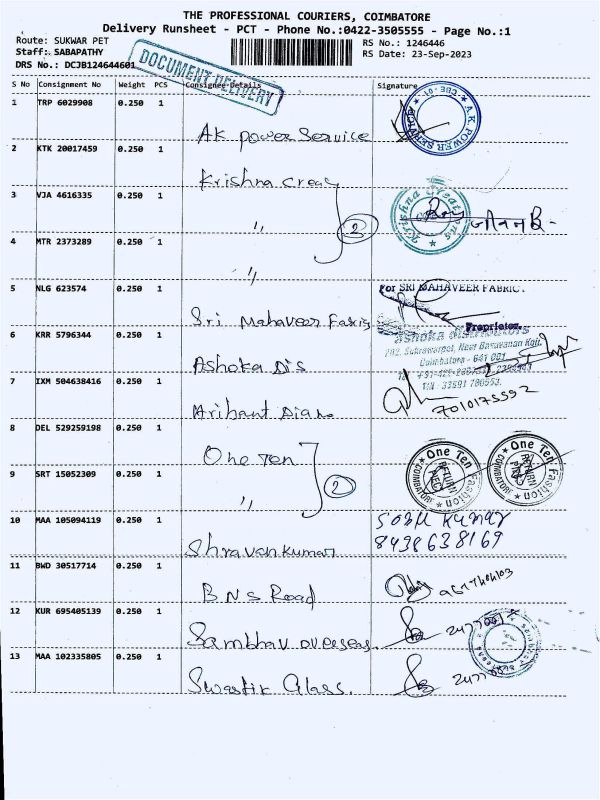 THE PROFESSIONAL COURIERS, COIMBATORE
Delivery Runsheet - PCT - Phone No.:0422-3505555 - Page No.:1
Route: SUKWAR PET
RS No.: 1246446
Staff: SABAPATHY
RS Date: 23-Sep-2023
DRS No.: DCJB124644601
DOCUMENT DELIVERY
S No Consignment No Weight PCS Consignee Details Signature
1 TRP 6029908 0.250 1
AK Power Service
A.K POWER SERVICE
2 KTK 20017459 0.250 1
Krishna Creay
3 VJA 4616335 0.250 1
" 2
Krishna Creations
4 MTR 2373289 0.250 1
"
5 NLG 623574 0.250 1
For SRI MAHAVEER FABRIC.
Sri Mahaveer Fabris
Proprietor.
6 KRR 5796344 0.250 1
Coimbatore - 641 001
Ashoka Dis
7 IXM 504638416 0.250 1
7010175592
Arihant
8 DEL 529259198 0.250 1
One Ten
One Ten Fashion COIMBATORE
One Ten Fashion COIMBATORE
9 SRT 15052309 0.250 1
" 2
10 MAA 105094119 0.250 1
Sonu Kumar
8438638169
Shravankumar
11 BWD 30517714 0.250 1
BNS Road
12 KUR 695405139 0.250 1
Sambhav overseas.
13 MAA 102335805 0.250 1
Swastik Glass.